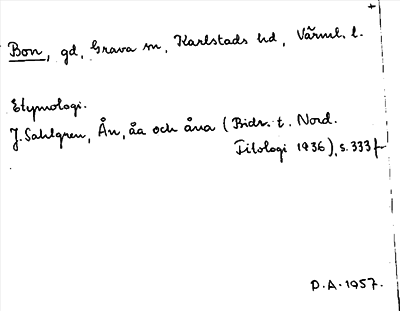 +
Bon, gd, Grava sn, Karlstads hd, Värml. l.
Etymologi.
J. Sahlgren, Ån, åa och åna (Bidr. t. Nord.
Filologi 1936), s. 333 f
D. A. 1957.